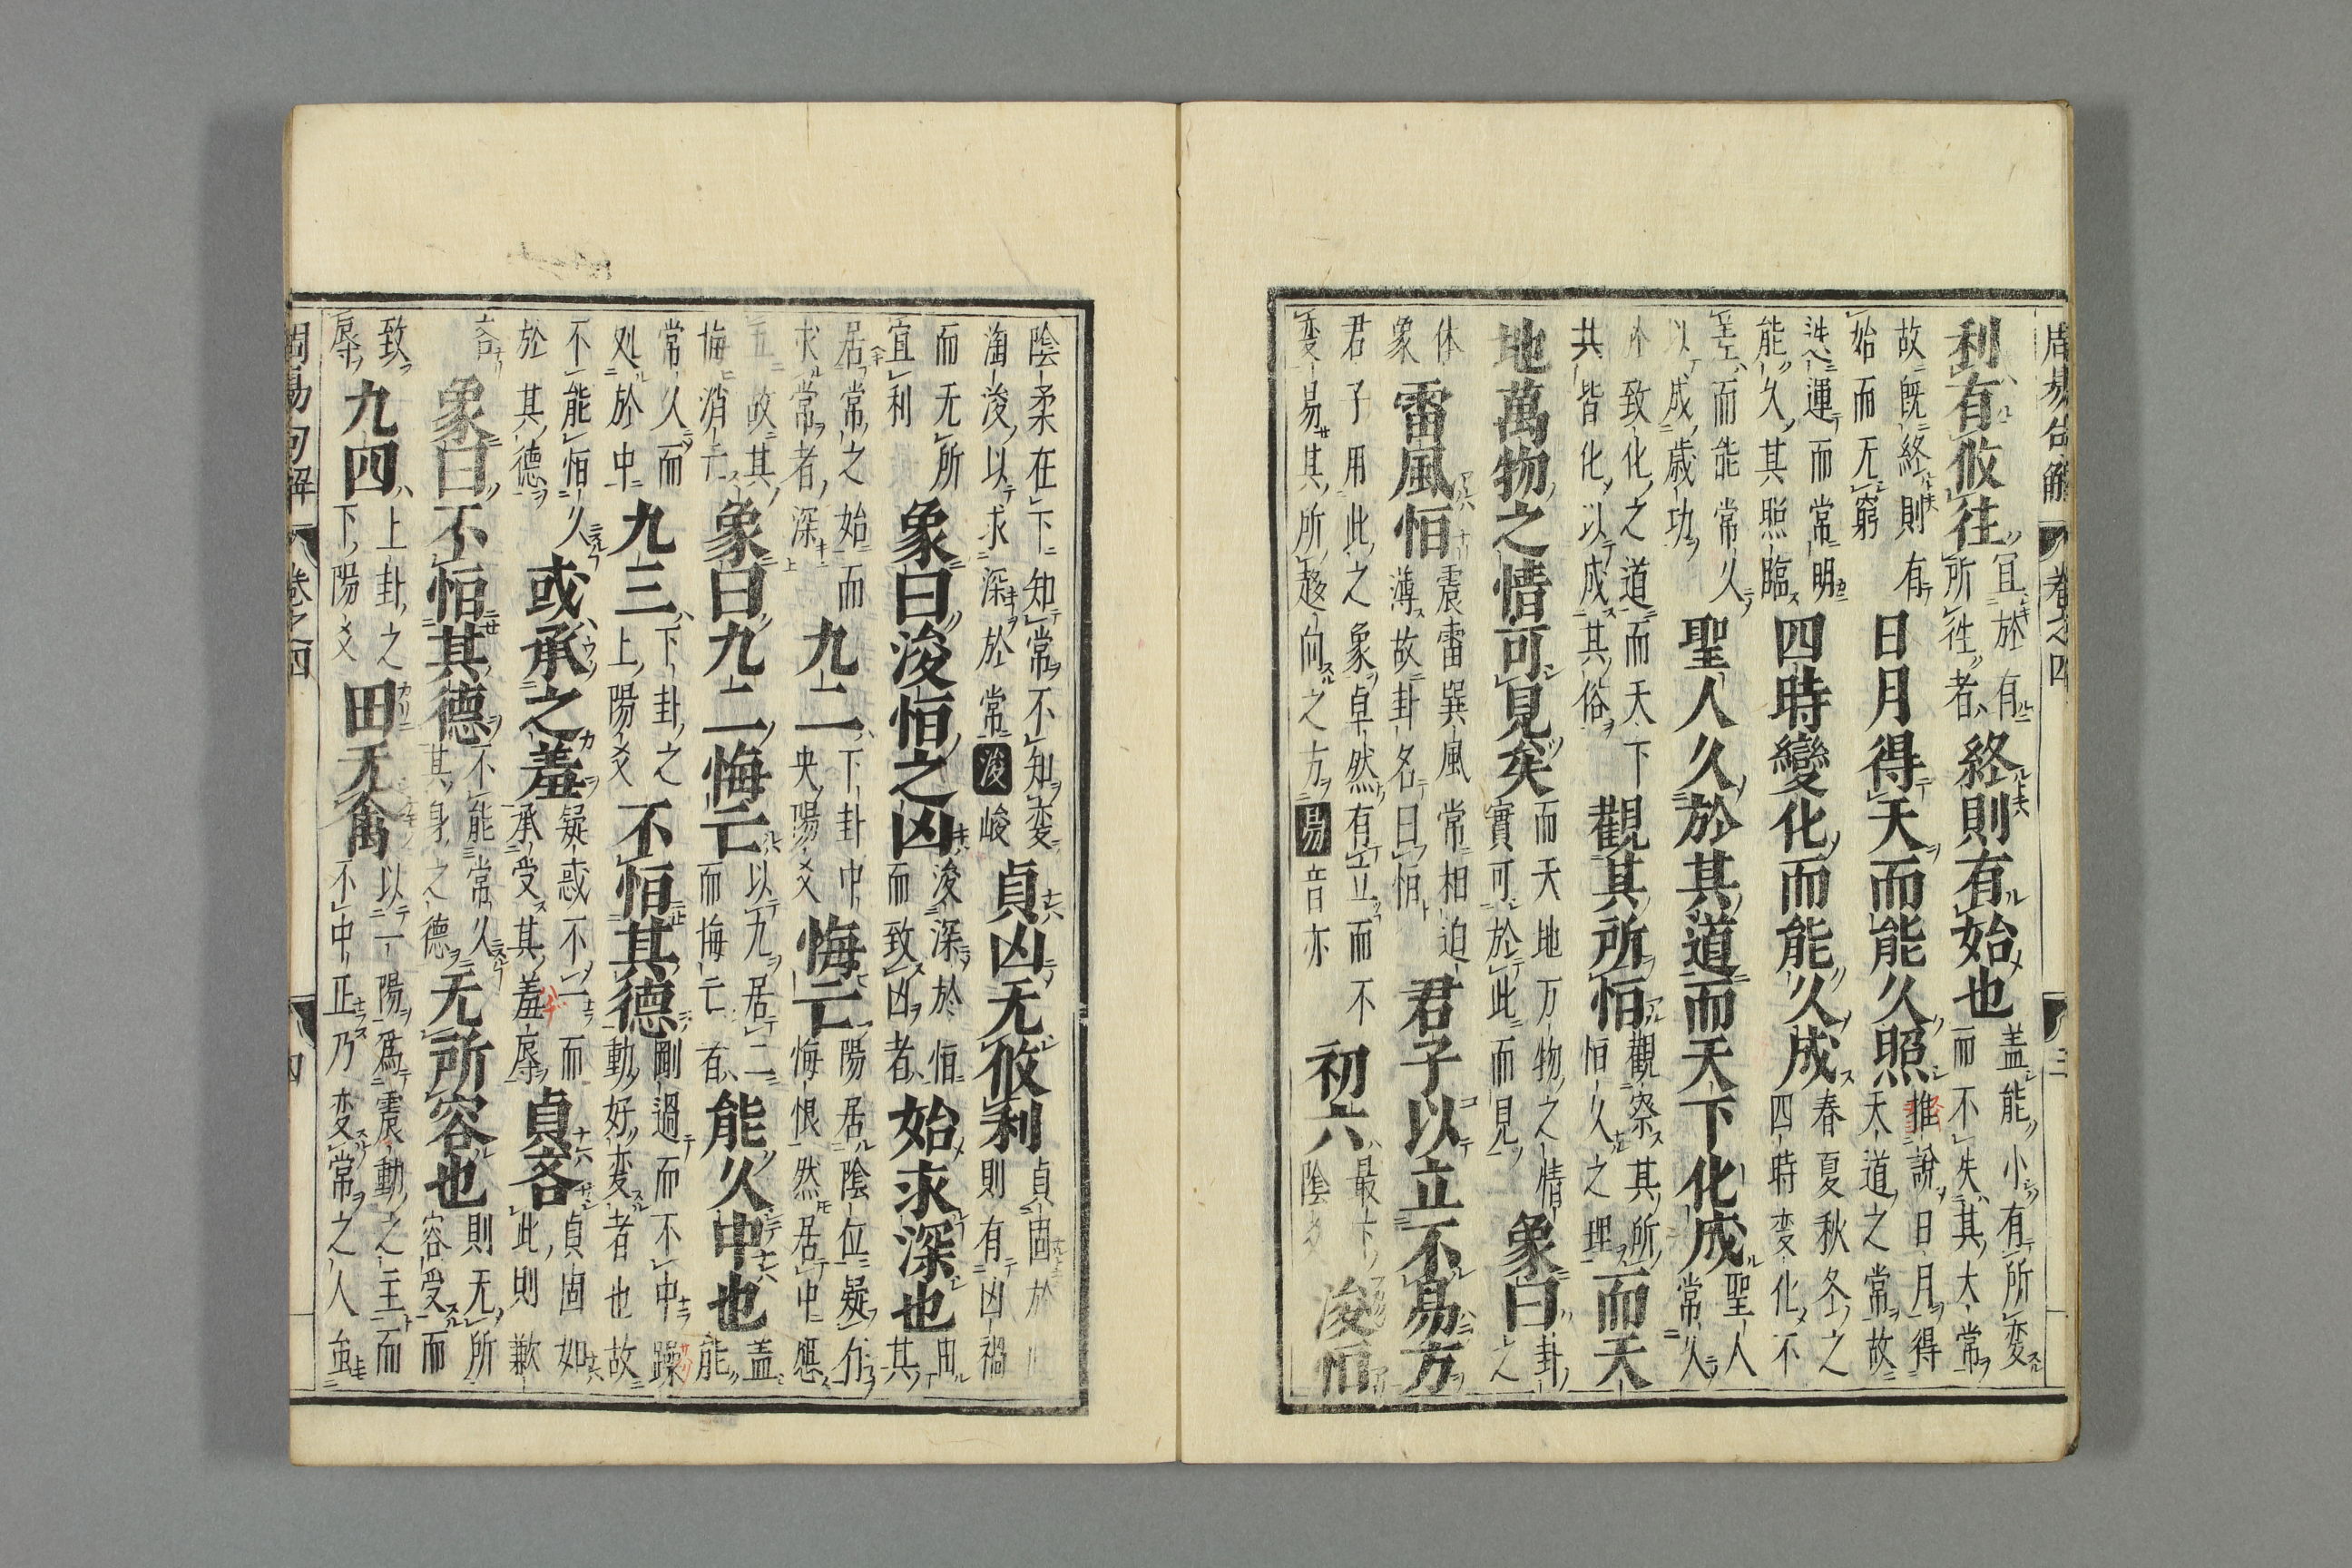 周易句解 卷之四 三
利有攸往 宜於有所往者 終則有始也 盖能小有所変而不失其大常
故既終則有始而无窮 日月得天而能久照 推說日月得天道之常故
迭運而常明能久其照臨 四時變化而能久成 春夏秋冬之四時変化不
而能常久以成歳功 聖人久於其道而天下化成 聖人常久
致化之道而天下共皆化以成其俗 觀其所恒 觀察其所恒久之理 而天
地萬物之情可見矣 而天地万物之情實可於此而見 象曰 卦之
体象 雷風恒 震雷巽風常相迫薄故卦名曰恒 君子以立不易方
君子用此之象卓然有立而不変易其所趍向之方 易 音亦 初六 最下陰爻 浚恒
陰柔在下知常不知変淘浚以求深於常 浚 峻 貞凶无攸利 貞固於則有凶禍
而无所宜利 象曰浚恒之凶 浚深於恒而致凶者 始求深也 由其
居常之始而求常者深 九二 下卦中央陽爻 悔亡 陽居陰位疑冇悔恨然居中應
五故其悔消亡 象曰九二悔亡 以九居二而悔亡者 能久中也 盖能
常久而処於中 九三 下卦之上陽爻 不恒其德 剛過而不中躁動好変者也故
不能恒久於其德 或承之羞 疑惑不一而承受其羞辱 貞吝 貞固如此則歉
吝 象曰不恒其德 不能常久其身之德 无所容也 則无所容受而
致辱 九四 上卦之下陽爻 田无禽 以一陽為震動之主而不中正乃変常之人虽
周易句解 卷之四 四